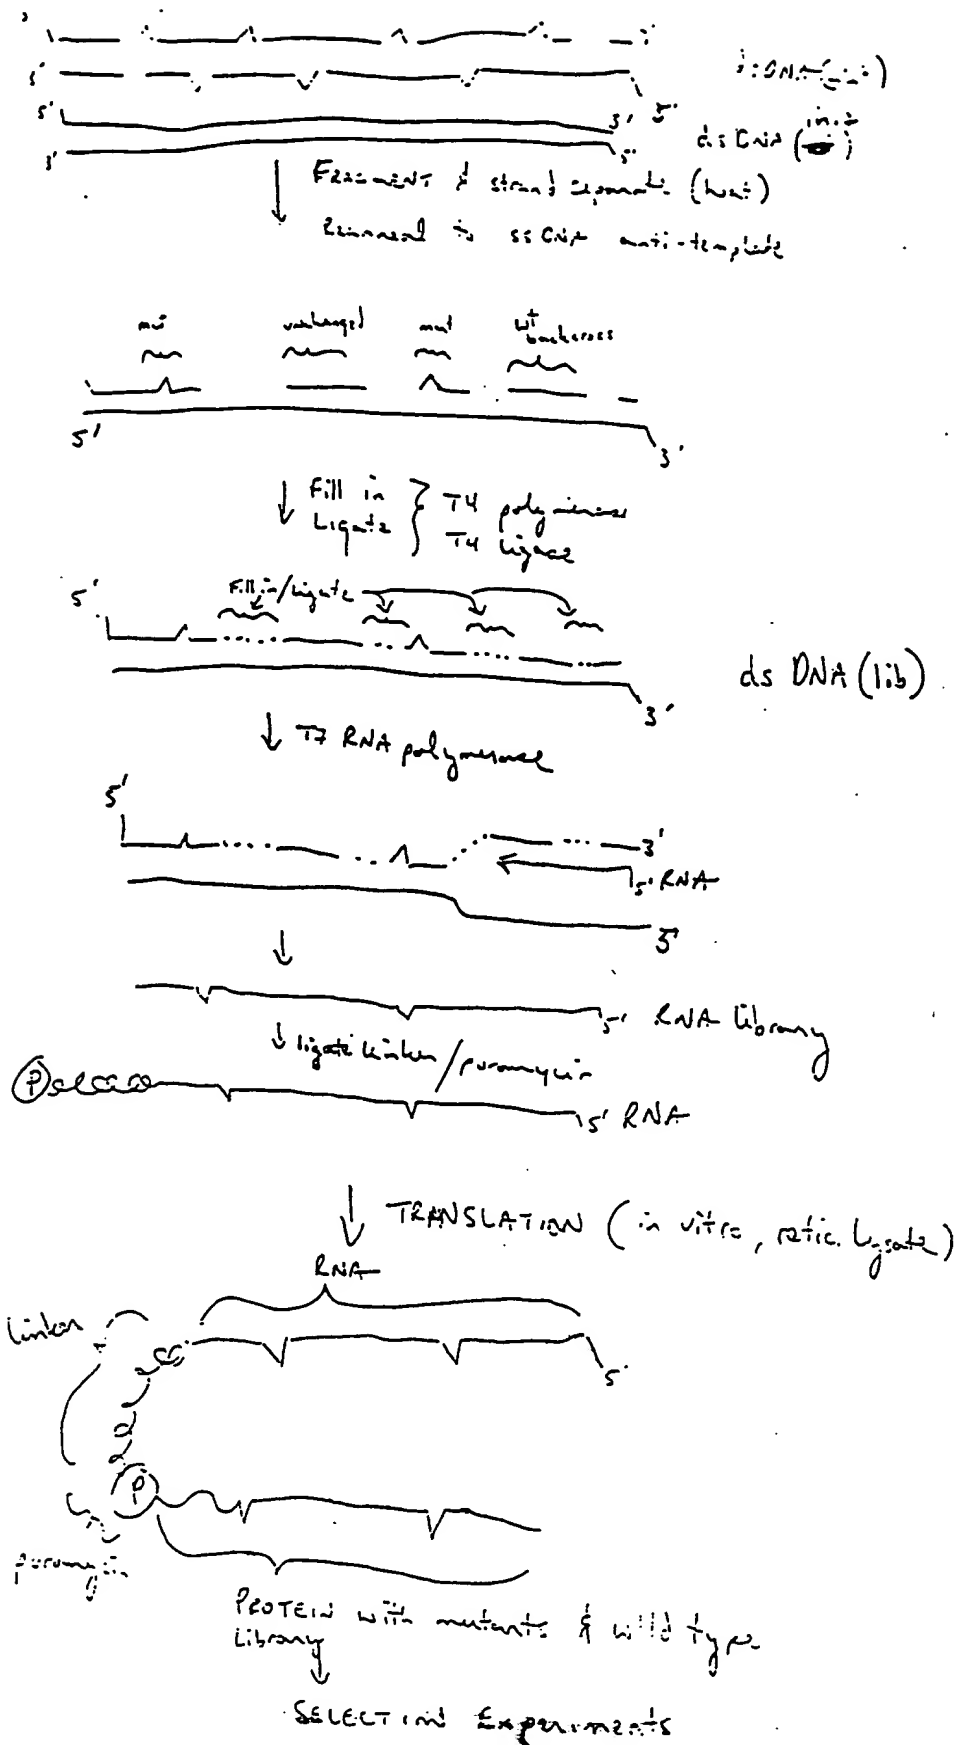 3'
5' 3' 5'
ds DNA (init)
3' 5'
FRAGMENT & strand separate (heat)
Reanneal to ssDNA anti-template
mut unchanged mut wt
backcross
5' 3'
Fill in
Ligate
T4 polymerase
T4 ligase
5' Fill in/Ligate
ds DNA (lib)
3'
T7 RNA polymerase
5'
3'
5' RNA
5'
5' RNA Library
ligate linker / puromycin
P
5' RNA
TRANSLATION (in vitro, retic. lysate)
RNA
linker
5'
P
puromycin
PROTEIN with mutants & wild type
Library
SELECTION Experiments